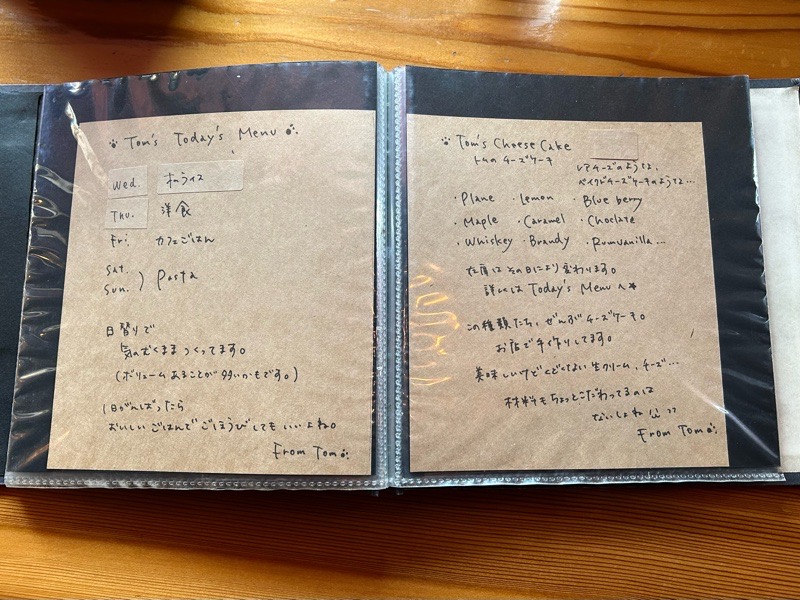 Tom's Today's Menu
Wed. オムライス
Thu. 洋食
Fri. カフェごはん
Sat.
Sun. ) Pasta
日替りで
気のむくままつくってます。
(ボリュームあることが多いかもです。)
1日がんばったら
おいしいごはんでごほうびしてもいいよね。
From Tom
Tom's Cheese Cake
トムのチーズケーキ
レアチーズのような、
ベイクドチーズケーキのような…
・Plane ・Lemon ・Blue berry
・Maple ・Caramel ・Choclate
・Whiskey ・Brandy ・Rumvanilla…
在庫はその日により変わります。
詳しくは Today's Menu へ
この種類たち、ぜんぶチーズケーキ。
お店で手作りしてます。
美味しいけどくどくない生クリーム、チーズ…
材料もちょっとこだわってるのは
ないしょね
From Tom